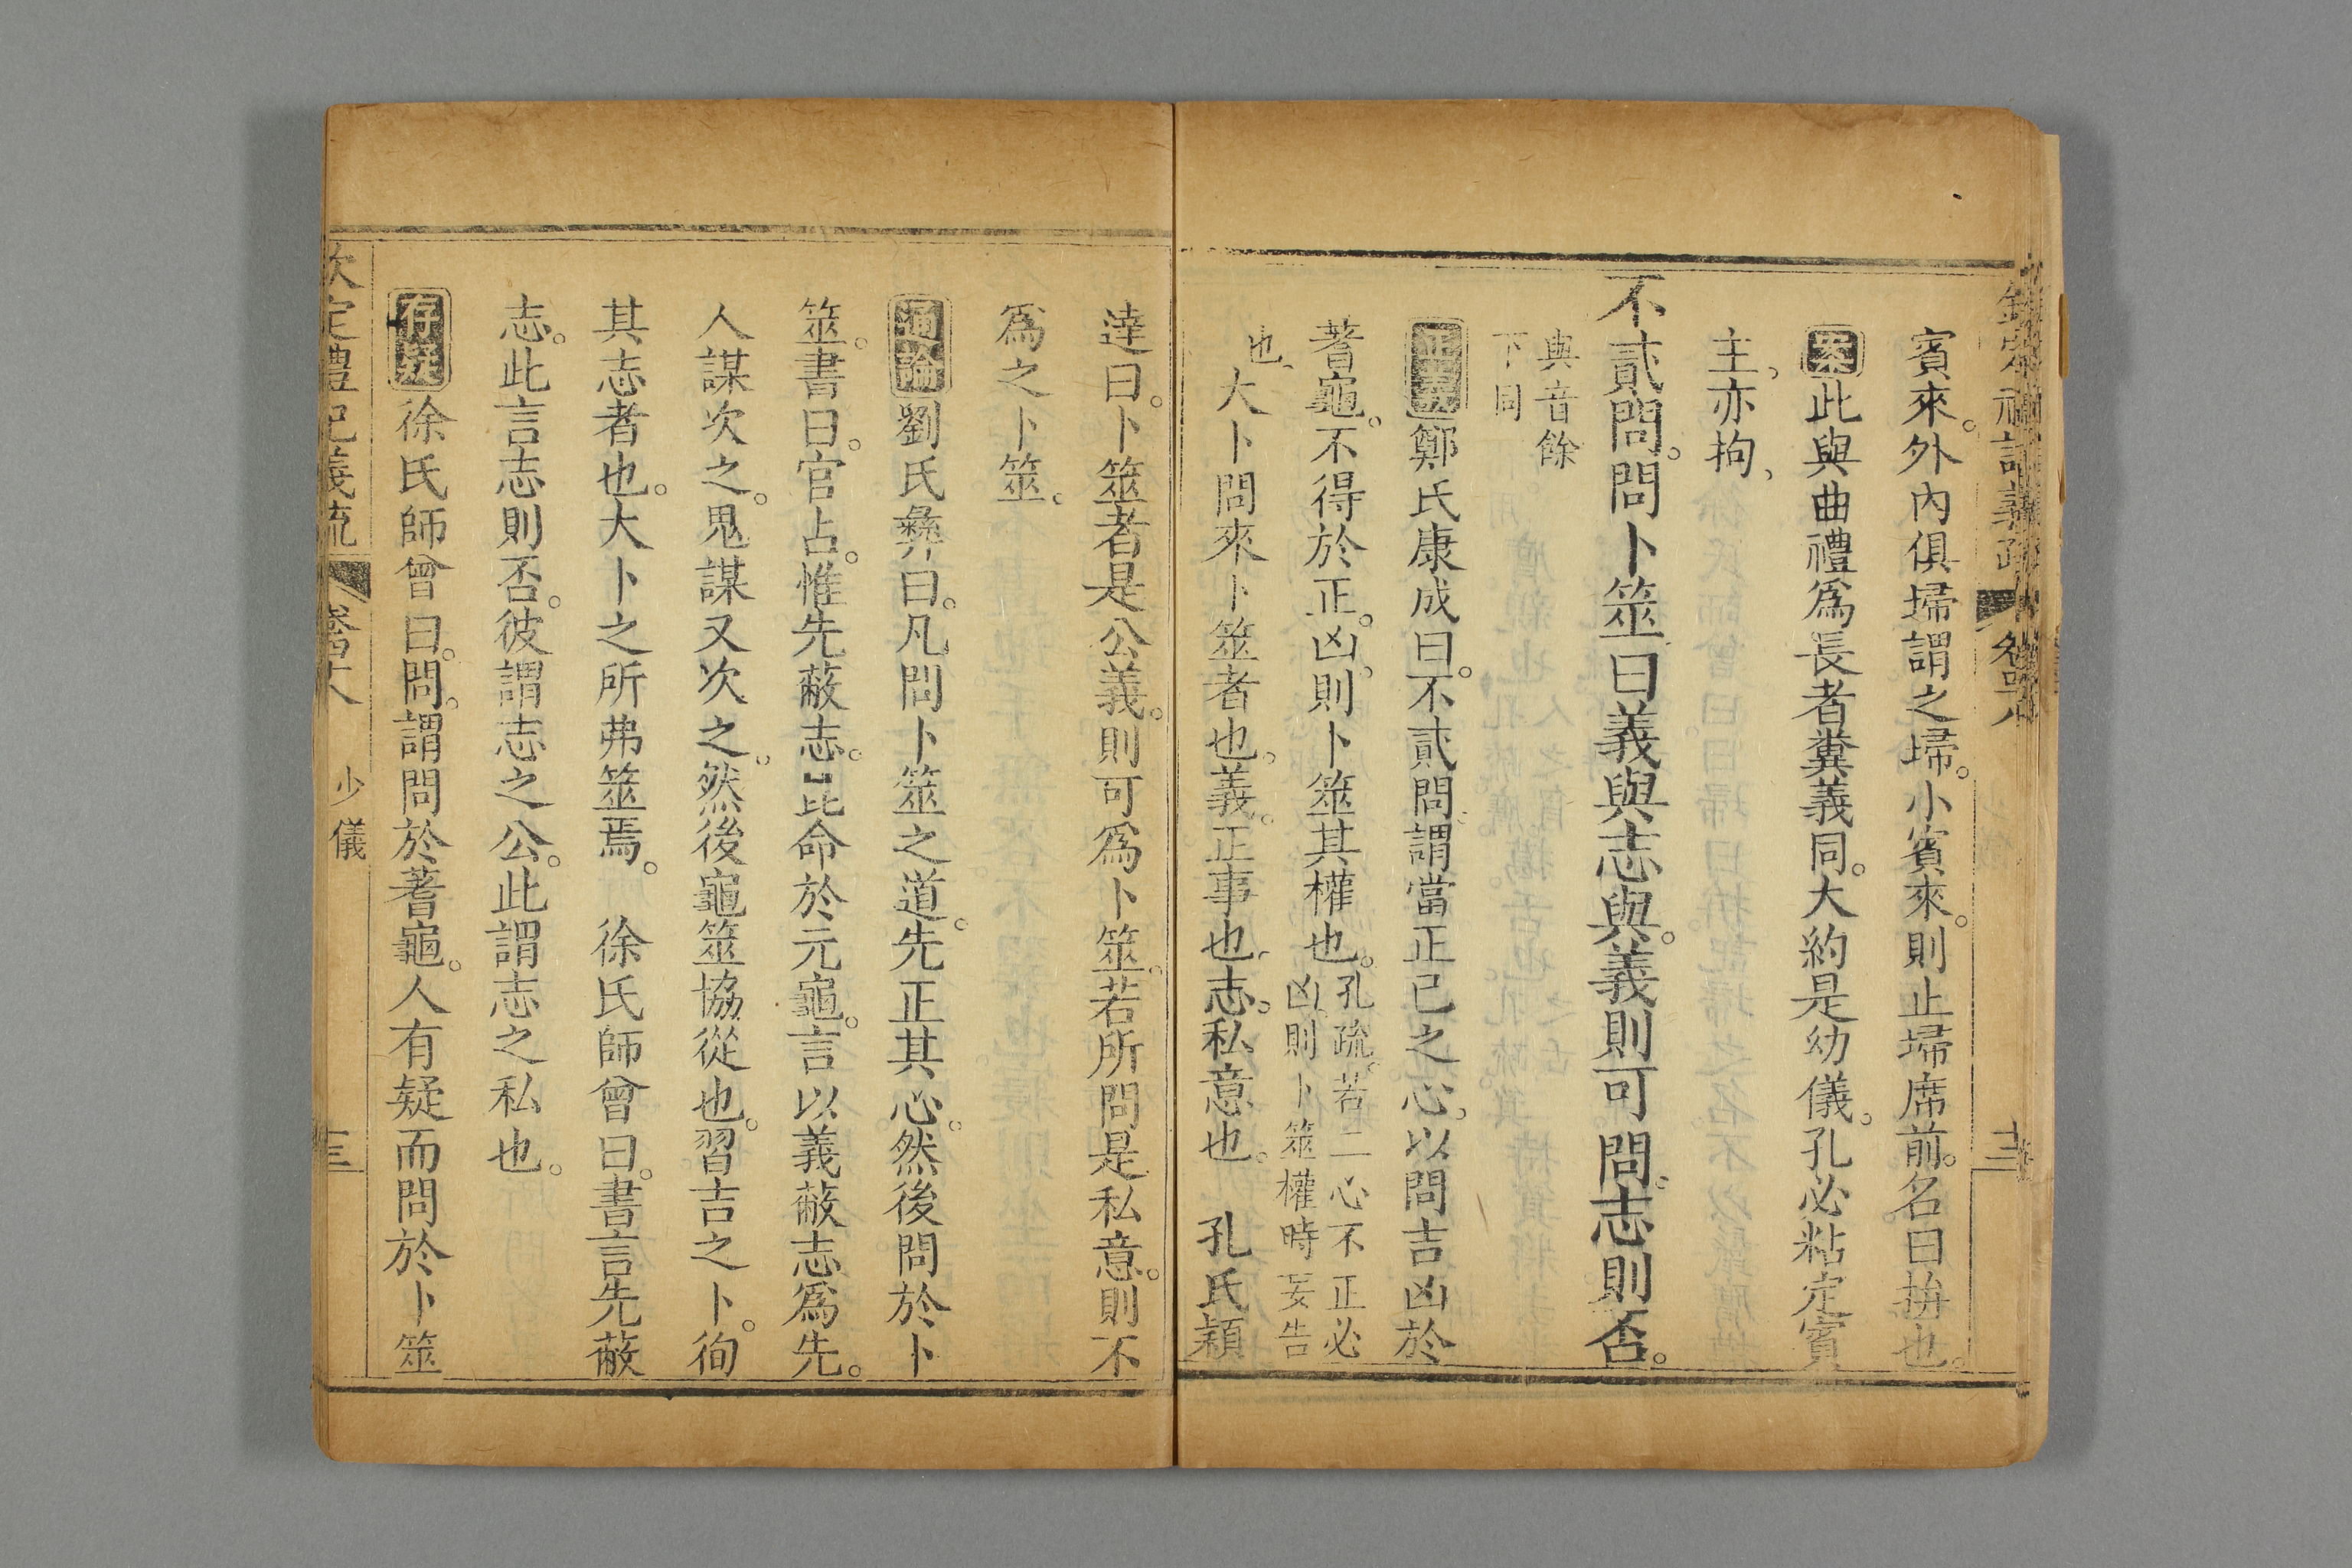 賓來。外內俱埽謂之埽。小賓來。則止埽席前。名曰拚也。
案此與曲禮爲長者糞義同。大約是幼儀。孔必粘定賓
主、亦拘、
不貳問。問卜筮曰義與志與。義則可問。志則否。
與音餘
下同
正義鄭氏康成曰。不貳問。謂當正己之心。以問吉凶於
蓍龜。不得於正。凶則卜筮其權也。
孔疏。若二心不正必
凶、則卜筮權時妄告
也、
大卜問來卜筮者也。義。正事也。志。私意也。 孔氏穎
達曰。卜筮者是公義。則可爲卜筮。若所問是私意。則不
爲之卜筮。
通論劉氏彝曰。凡問卜筮之道。先正其心。然後問於卜
筮。書曰。官占。惟先蔽志。昆命於元龜。言以義蔽志爲先。
人謀次之。鬼謀又次之。然後龜筮協從也。習吉之卜。徇
其志者也。大卜之所弗筮焉。 徐氏師曾曰。書言先蔽
志。此言志則否。彼謂志之公。此謂志之私也。
存疑徐氏師曾曰。問。謂問於蓍龜。人有疑而問於卜筮
欽定禮記義疏 卷四十八 少儀 三